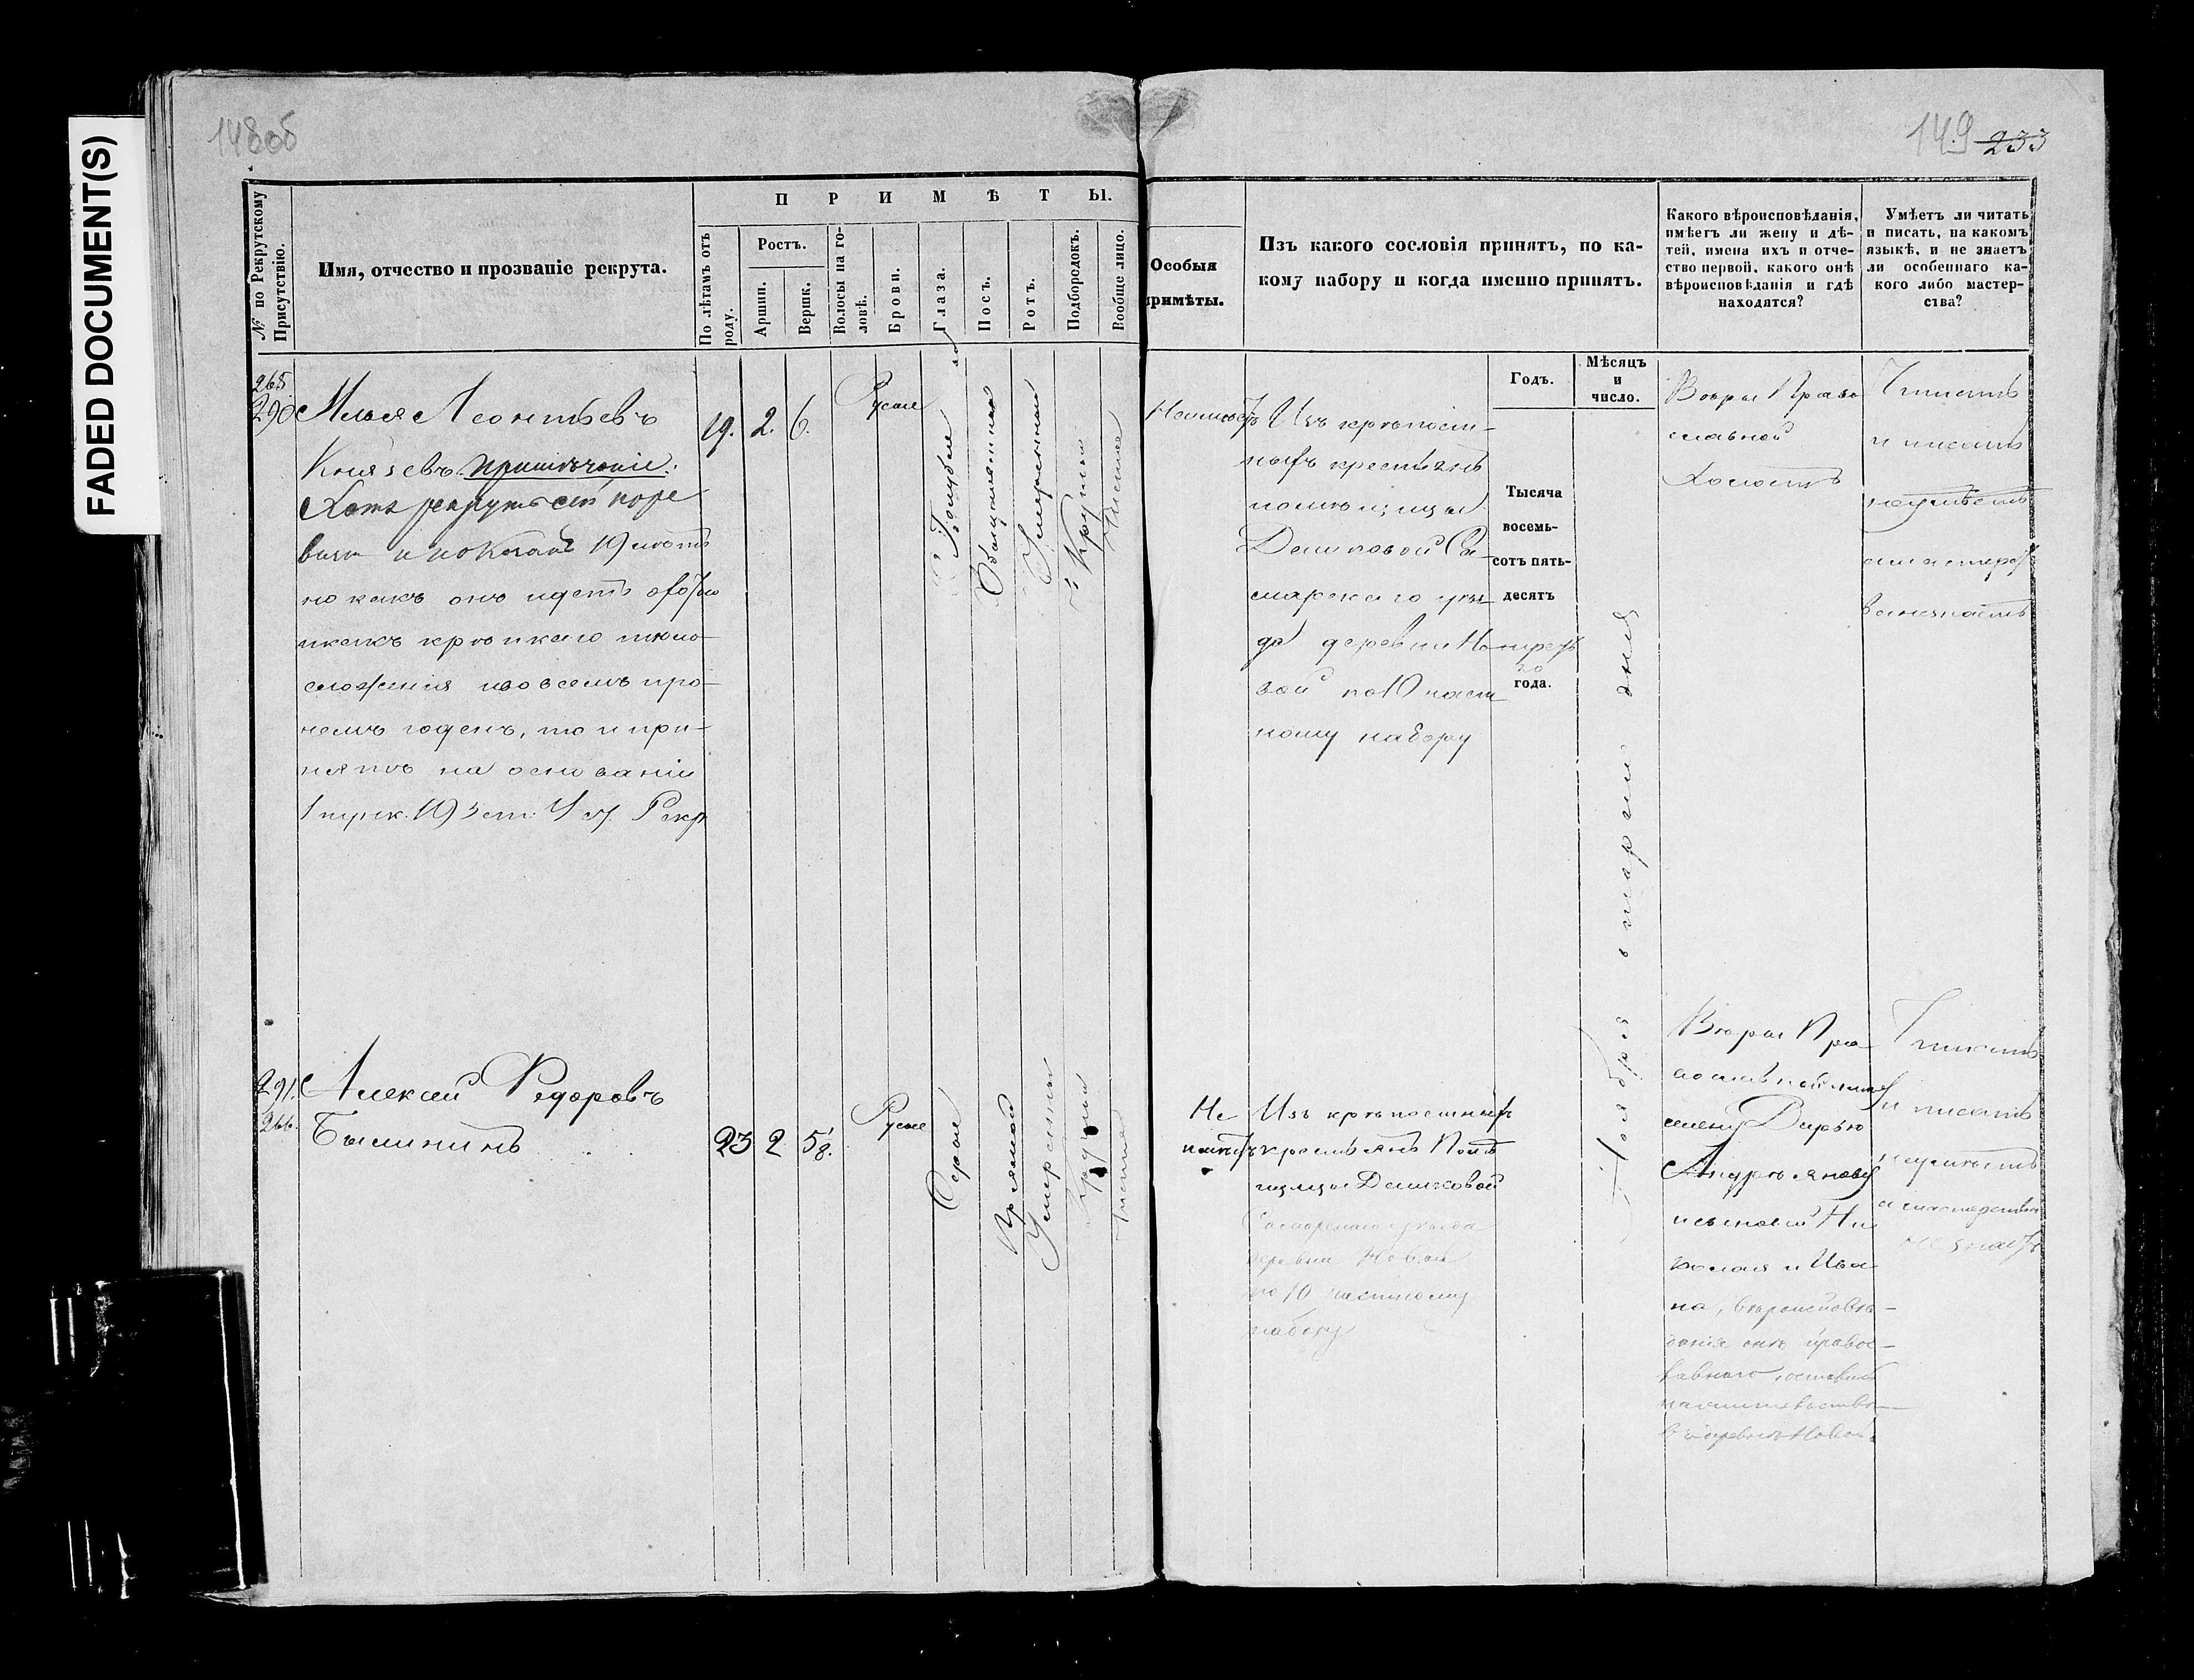 FADED DOCUMENT(S)
148об
149 233
№ по Рекрутскому Присутствію.
Имя, отчество и прозваніе рекрута.
ПРИМѢТЫ.
По лѣтамъ отъ роду.
Ростъ.
Аршин.
Вершк.
Волосы на головѣ.
Брови.
Глаза.
Носъ.
Ротъ.
Подбородокъ.
Вообще лицо.
Особыя
примѣты.
Изъ какого сословія принятъ, по ка-
кому набору и когда именно принятъ.
Какого вѣроисповѣданія,
имѣетъ ли жену и дѣ-
тей, имена ихъ и отче-
ство первой, какого онѣ
вѣроисповѣданія и гдѣ
находятся?
Умѣетъ ли читать
и писать, на какомъ
языкѣ, и не знаетъ
ли особеннаго ка-
кого либо мастер-
ства?
Годъ.
Мѣсяцъ
и
число.
265
290
Илья Леонтьевъ
Князевъ. Примѣчаніе.
Хотя рекрутъ сей по ре
визіи и показанъ 19 лѣтъ
но какъ онъ идетъ охотно
и какъ крѣпкаго тѣло-
сложенія и во всемъ про-
чемъ годенъ, то и при-
нятъ на основаніи
1 пунк. 193 ст. Уст. Рекр
19. 2. 6.
Русые
Голубые
Обыкновенной
Умеренный
Круглый
Чистое
Неимѣетъ
Изъ крѣпост-
ныхъ крестьянъ
помѣщицы
Дашковой Са-
марскаго уѣз-
да деревни Но-
вой по 10 част
ному набору
Тысяча
восемь-
сотъ пять-
десятъ
третьяго
года.
Ноября втораго дня
Вѣры Право
славной
Холостъ
Читать
и писать
неумѣетъ
и мастерст
ва незнаетъ
291.
266.
Алексей Федоровъ
Былинкинъ
23 2 5⅛.
Русые
Серые
Прямой
Умеренный
Круглый
Чистое
Не
имѣетъ
Изъ крѣпостныхъ
крестьянъ Помѣ
щицы Дашковой
Самарскаго уѣзда
деревни Новой
по 10 частному
набору
Вѣры Пра-
вославной имѣетъ
жену Дарью
Андреянову
и сыновей Ни
колая и Ива
на, вѣроисповѣ-
данія онѣ право-
славнаго, оставилъ
на жительство
въ деревнѣ Новой.
Читать
и писать
неумѣетъ
и мастерства
не знаетъ